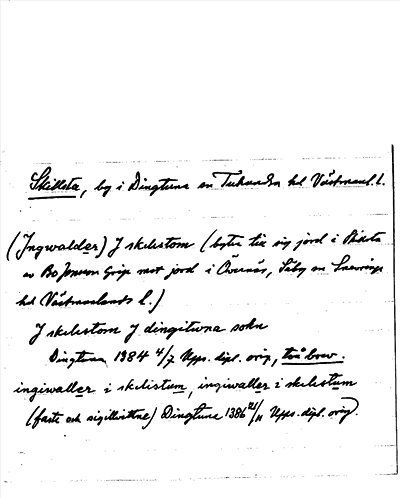 Skillsta, by i Dingtuna sn Tuhundra hd Västmanl. l.
(Ingwalder) J skelistom (byter til sig jord i
av Bo Jonsson Grip mot jord i Övernäs, Säby sn Snevringe
hd Västmanlands l.)
J skelistom J dingitwna sokn
Dingtuna 1384 4/7 Upps. dipl. orig., två brev.
ingiwaller i skelistum, ingiwaller i skelistum
(faste och sigillvittne) Dingtuna 1386 /11 Upps. dipl. orig.